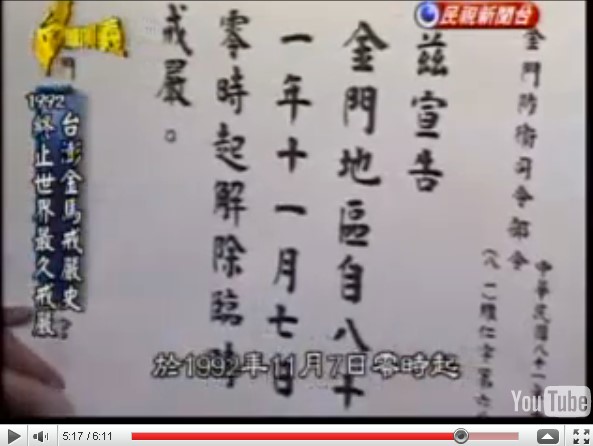 民視新聞台
中華民國八十一年
金門防衛司令部令
茲宣告
金門地區自八十
一年十一月七日
零時起解除臨時
戒嚴。
1992
台澎金馬戒嚴史
終止世界最久戒嚴
於1992年11月7日零時起
YouTube
5:17 / 6:11